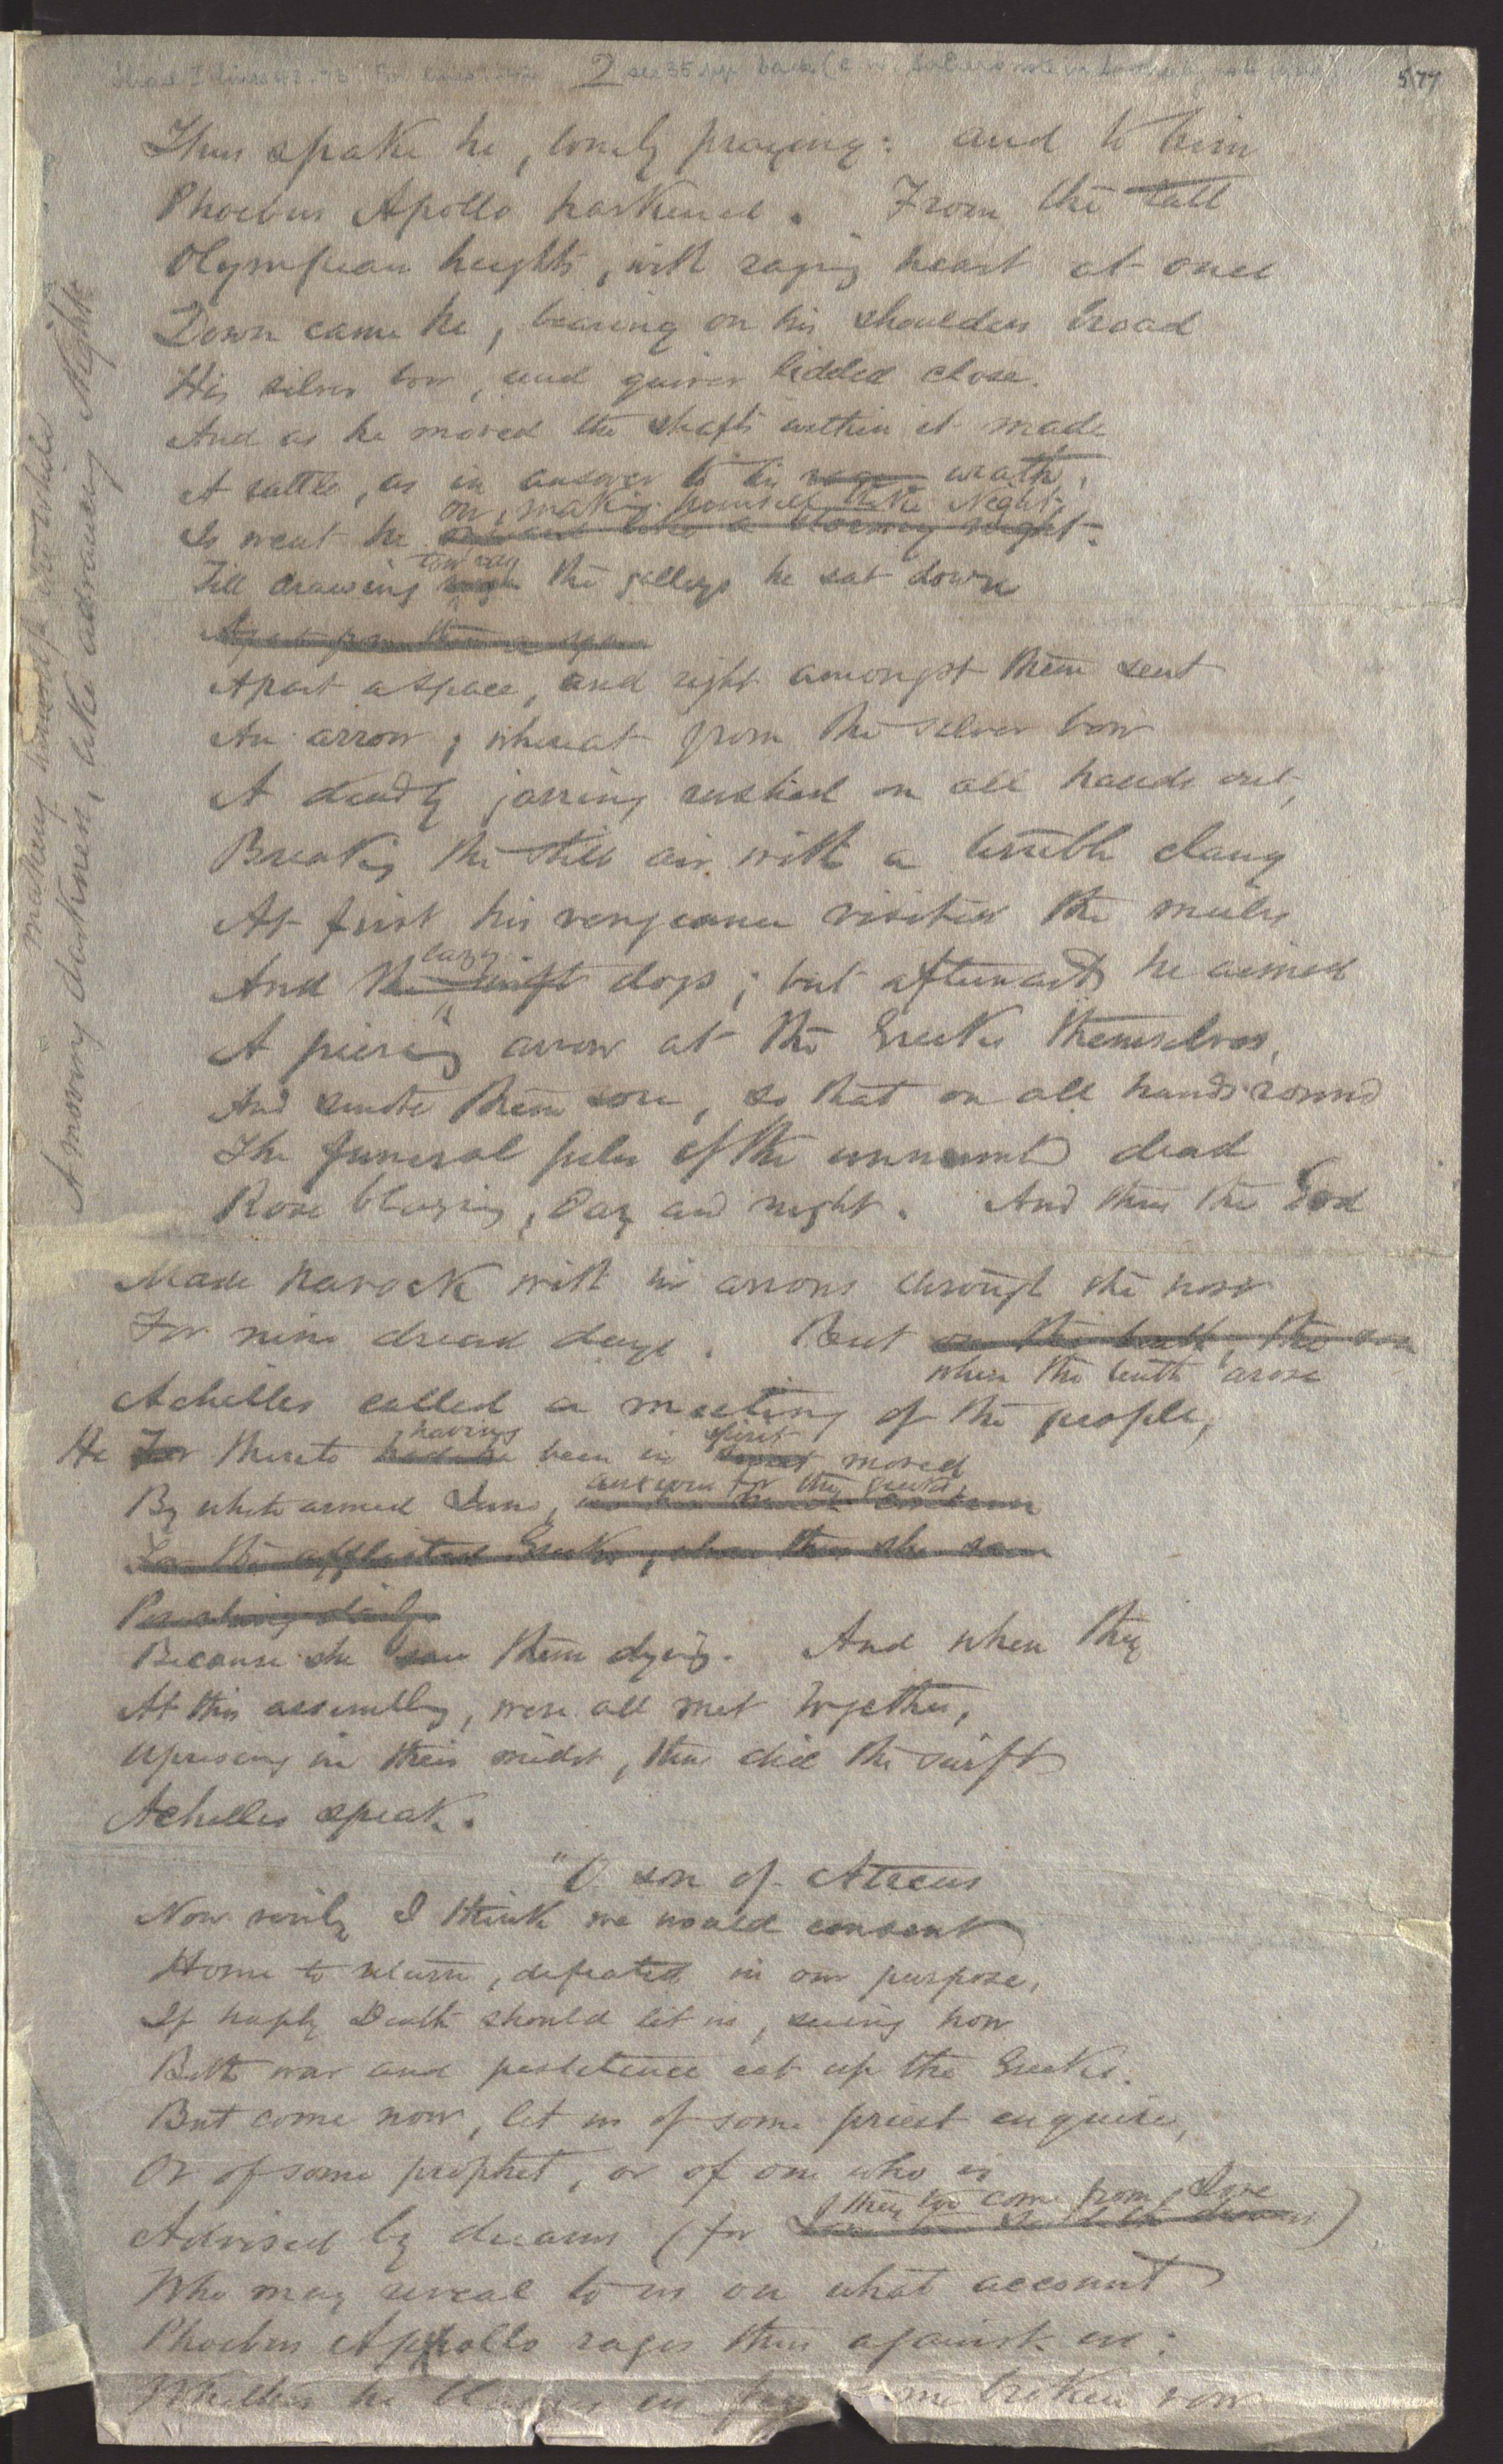 2
577
Thus spake he, lonely praying: and to him
Phoebus Apollo harkened. From the tall
Olympian heights, with raging heart at once
Down came he, bearing on his shoulders broad
His silver bow, and quiver lidded close.
And as he moved the shafts within it made
A rattle, as in answer to his rage wrath,
on, making himself like Night,
So went he like a stormy night.
toward
Till drawing nigh the galleys he sat down
Apart from them a space
Apart a space, and right amongst them sent
An arrow; whereat from the silver bow
A deadly jarring rushed on all hands out,
Breaking the still air with a terrible clang
At first his vengeance visited the mules
lazy
And the swift dogs; but afterwards he aimed
A piercing arrow at the Greeks themselves,
And smote them sore, so that on all hands round
The funeral piles of the unnumbered dead
Rose blazing, day and night. And thus the God
Made havock with his arrows through the host
For nine dread days. But on the tenth, the son
when the tenth arose
Achilles called a meeting of the people,
having spirit
He For thereto had he been in moved
anxious for the Greeks
By white armed Juno,
For the afflicted Greeks, when thus she saw
Perishing daily
Because she saw them dying. And when they
At this assembly, were all met together,
Uprising in their midst, thus did the swift
Achilles speak.
"O son of Atreus
Now verily I think we would consent
Home to return, defeated in our purpose,
If haply Death should let us, seeing how
Both war and pestilence eat up the Greeks.
But come now, let us of some priest enquire,
Or of some prophet, or of one who is
they too come from Jove
Advised by dreams (for )
Who may reveal to us on what account
Phoebus Apollo rages thus against us:
Whether he blames us for some broken vow
making himself the while
A moving darkness, like advancing Night